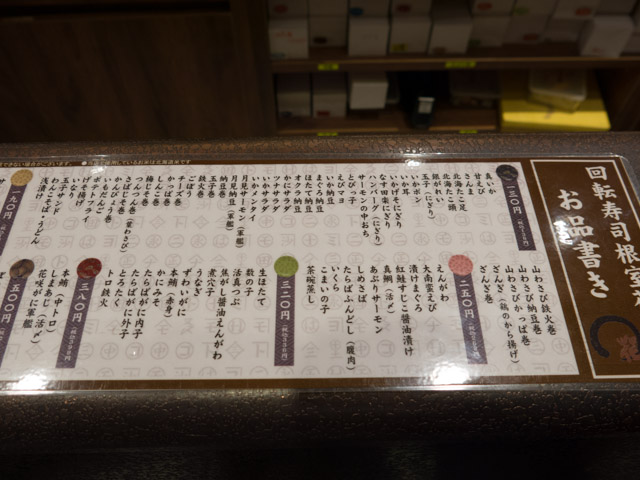 回転寿司 根室
お品書き
一三〇円
真いか
甘えび
さんま
北海たこ足
北海たこ頭
銀がれい
玉子(にぎり)
いかポン
いか耳
いかげそにぎり
なす田楽にぎり
ハンバーグ(にぎり)
サーモンの中おち
とびっ子
えびマヨ
いか納豆
まぐろ納豆
ほたて納豆
オクラ納豆
かにサラダ
ツナサラダ
いかサラダ
いかメンタイ
月見サーモン(軍艦)
月見納豆(軍艦)
納豆巻
玉子巻
鉄火巻
ごぼう
チーズ巻
かっぱ巻
しんこ巻
梅じそ巻
つんつん巻(葉わさび)
さばじそ巻
かんぴょう巻
いもだんご
ポテトフライ
げそ揚げ
いなり
玉子サンド
わんこそば・うどん
浅漬け
一九〇円
山わさび鉄火巻
山わさび納豆巻
山わさびかっぱ巻
ざんぎ(鶏のから揚げ)
ざんぎ巻
二五〇円
えんがわ
大南蛮えび
漬けまぐろ
紅鮭すじこ醤油漬け
真鯛(活〆)
あぶりサーモン
しめさば
たらばふんどし(腹肉)
いくら
こまいの子
茶碗蒸し
三二〇円
生ほたて
数の子
活真つぶ
焦がし醤油えんがわ
煮穴子
うなぎ
ずわいがに
本鮪(赤身)
かにみそ
たらばがに内子
たらばがに外子
とろたく
トロ鉄火
三八〇円
本鮪(中トロ)
しまあじ(活〆)
花咲がに軍艦
五〇〇円